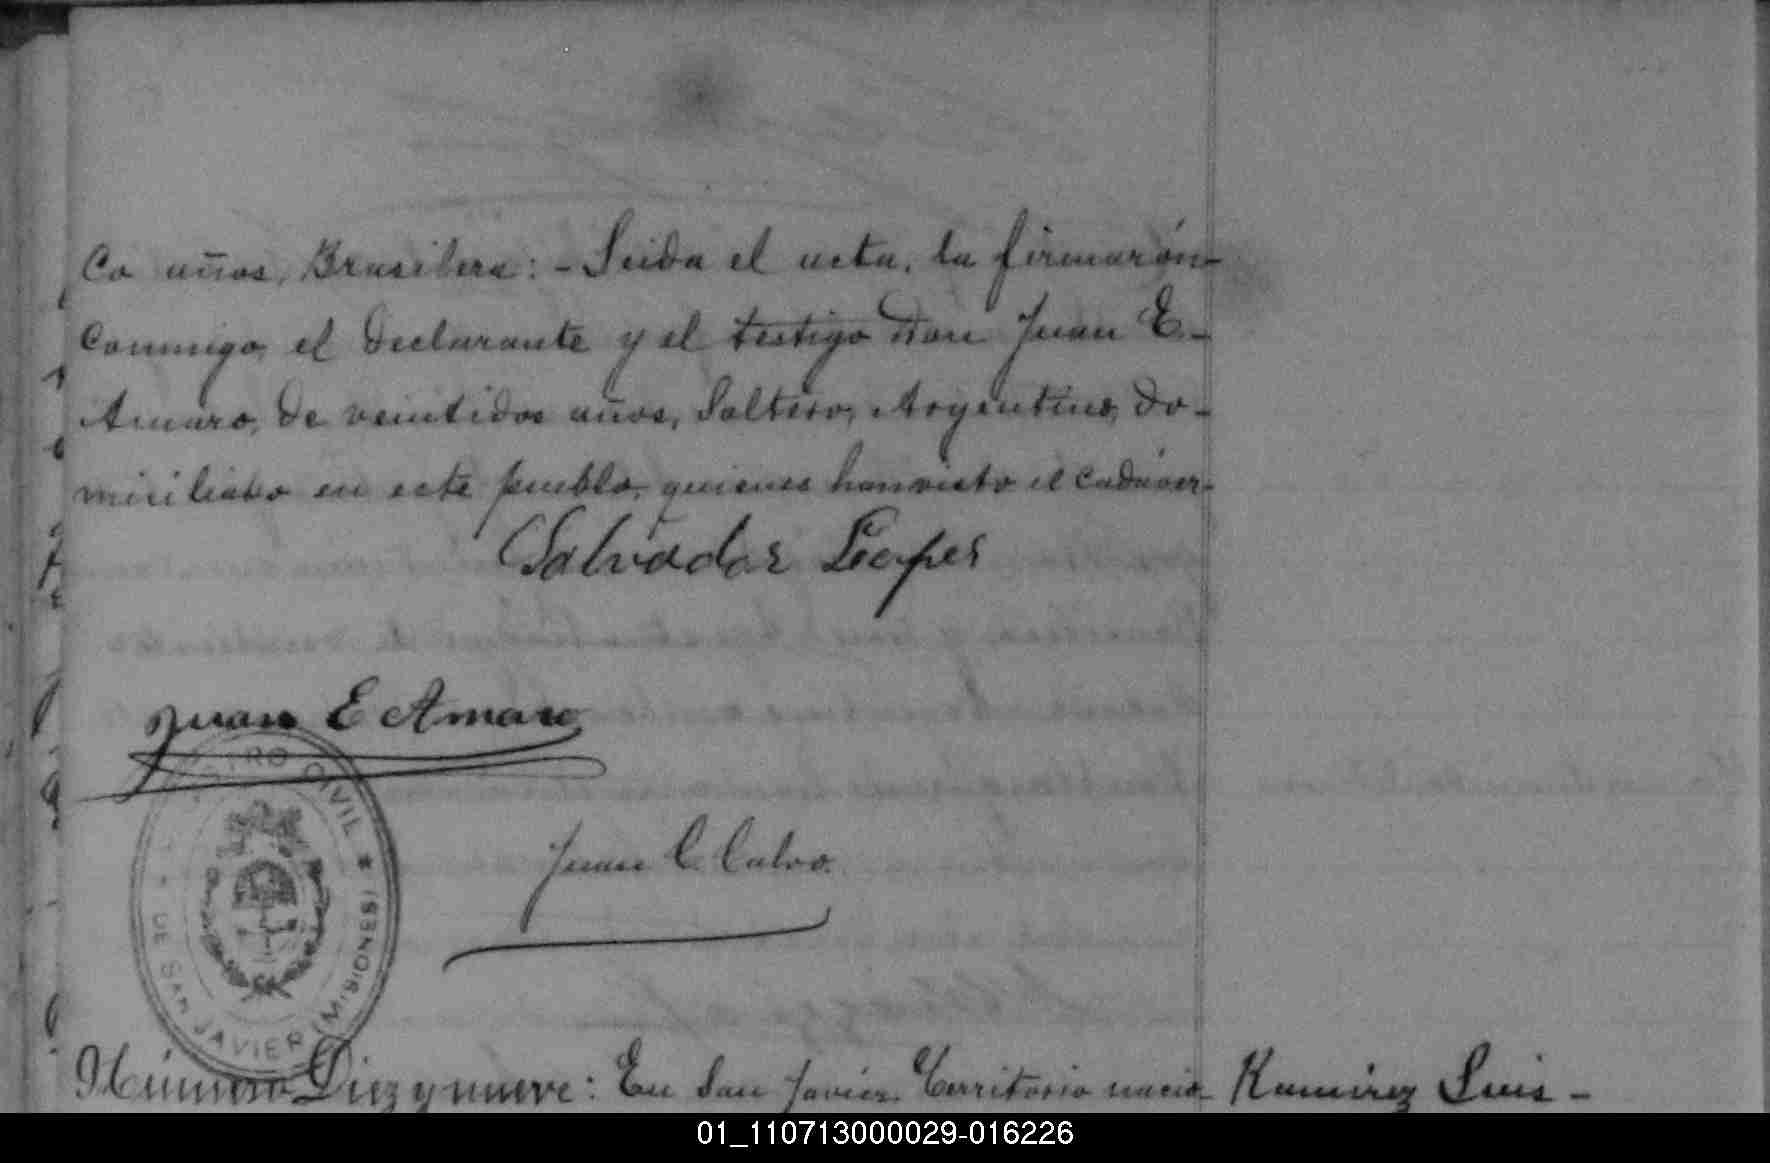 co años, Brasilera: - Leida el acta, la firmarón
conmigo, el declarante y el testigo don Juan E.
Amaro, de veintidos años, Soltero, Argentino, do-
miciliado en este pueblo, quienes han visto el cadáver.
Salvador Lopes
Juan E Amaro
REGISTRO CIVIL * DE SAN JAVIER (MISIONES)
Juan C. Calvo.
Número Diez y nueve: En San Javier, Territorio nacio- Ramirez Luis -
01_110713000029-016226